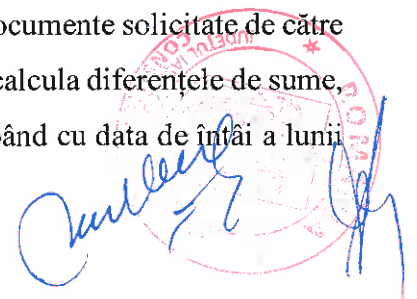 ocumente solicitate de către
calcula diferențele de sume,
ând cu data de întâi a lunii
ROM